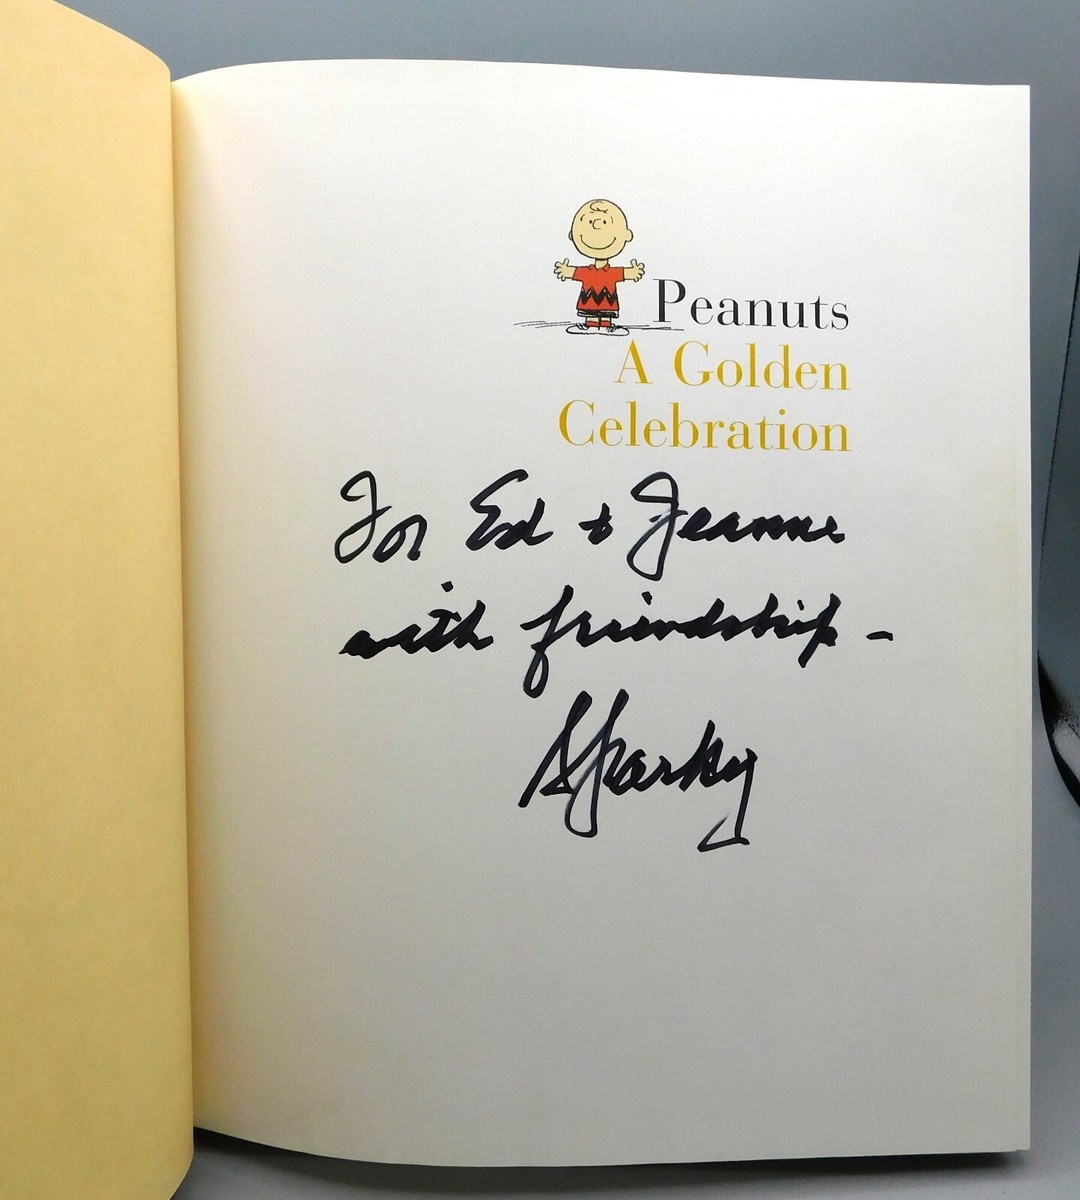 Peanuts
A Golden
Celebration
For Ed + Jeanne
with friendship -
Sparky